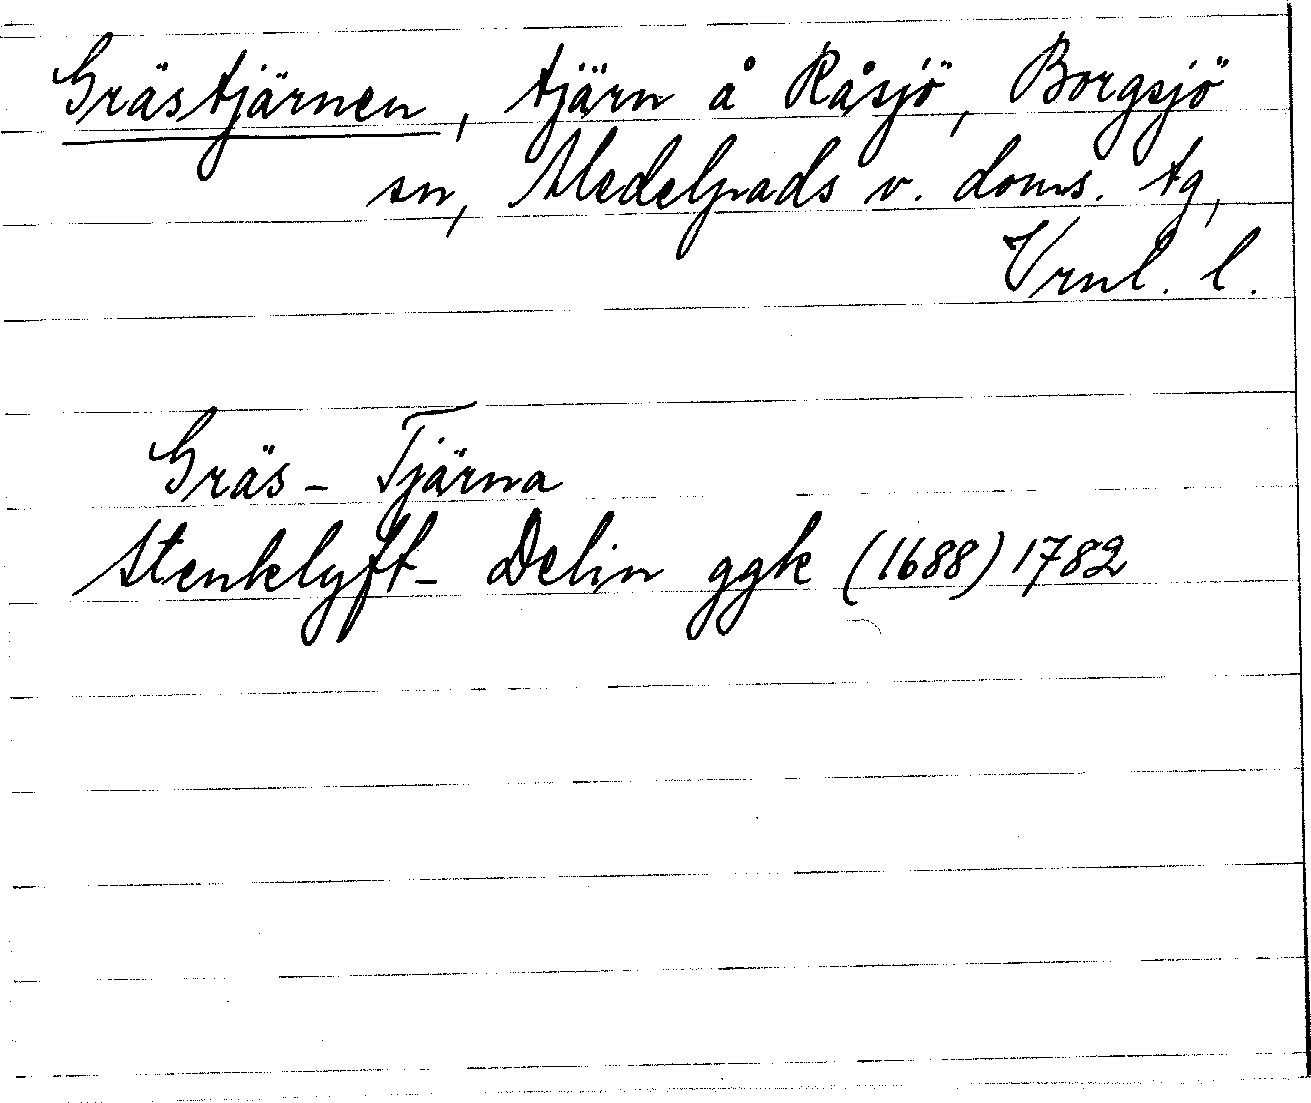 Grästjärnen, tjärn å Råsjö, Borgsjö
sn, Medelpads v. doms. tg,
Vrnl. l.
Gräs - Tjärna
Stenklyft- Delin ggk (1688) 1782